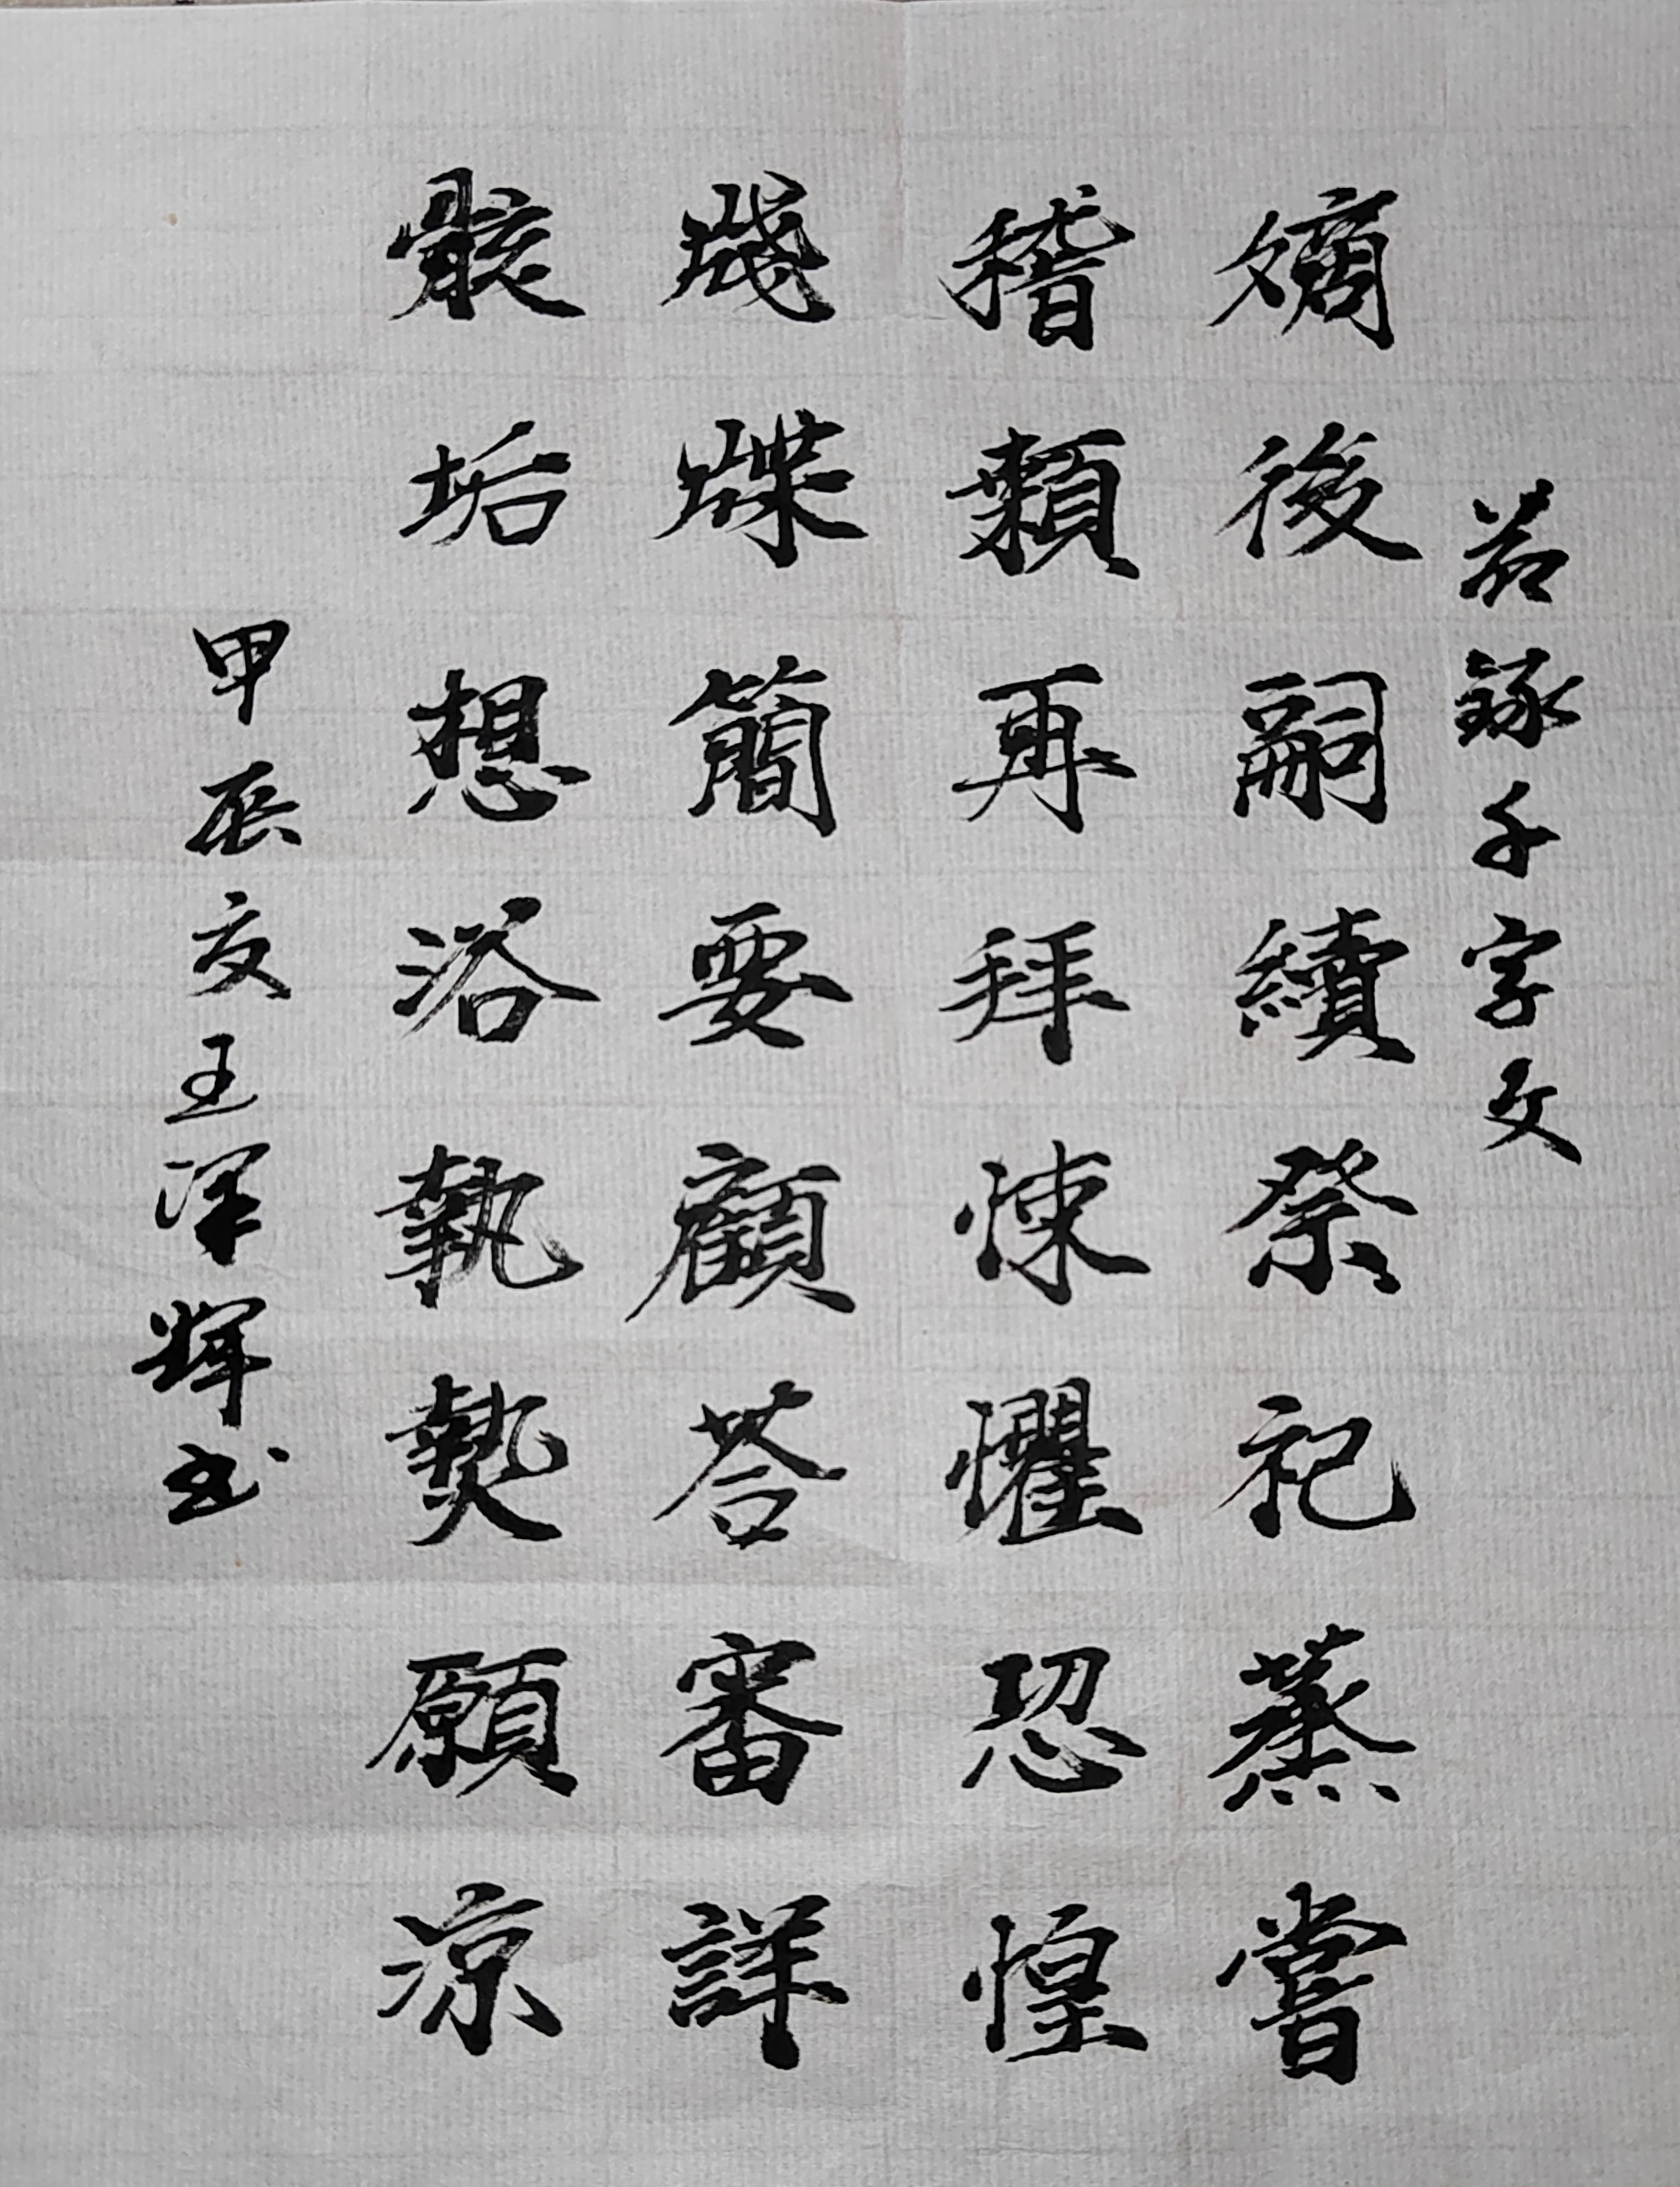 节録千字文
嫡後嗣續祭祀蒸嘗
稽顙再拜悚懼恐惶
牋牒簡要顧荅審詳
骸垢想浴執熱願凉
甲辰夏王泽輝书